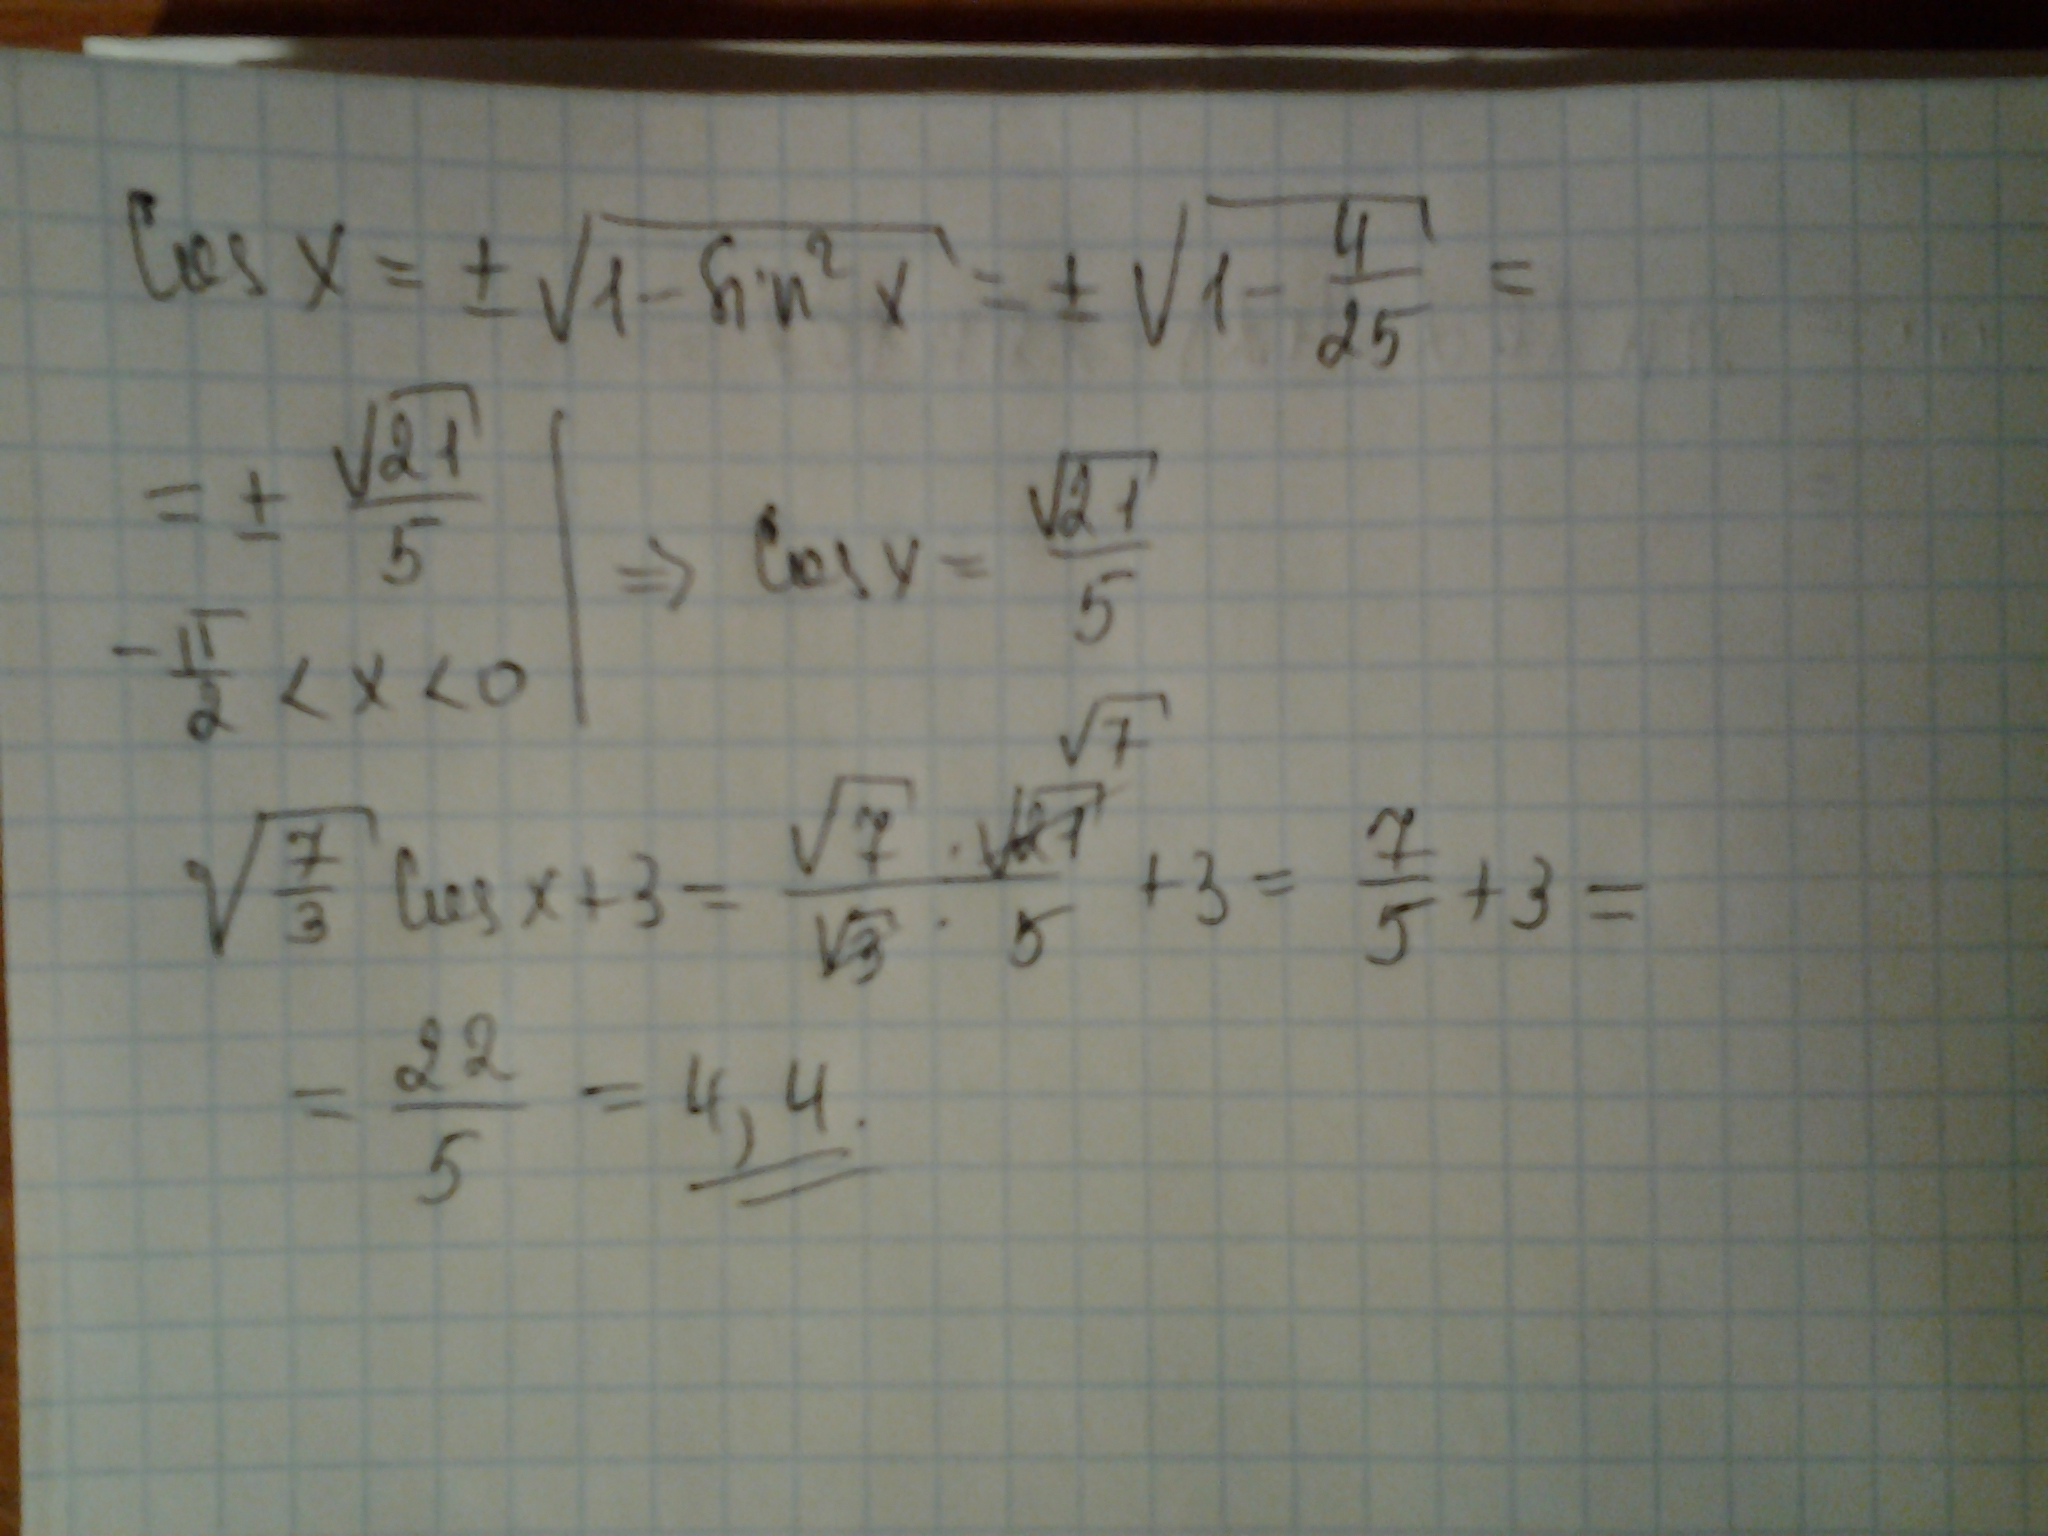 Cos x = ± √(1 - sin² x) = ± √(1 - 4/25) =
= ± √21/5 | ⇒ Cos x = √21/5
-π/2 < x < 0
√(7/3) Cos x + 3 = (√7 · √21)/(√3 · 5) + 3 = 7/5 + 3 =
√7
= 22/5 = 4,4.